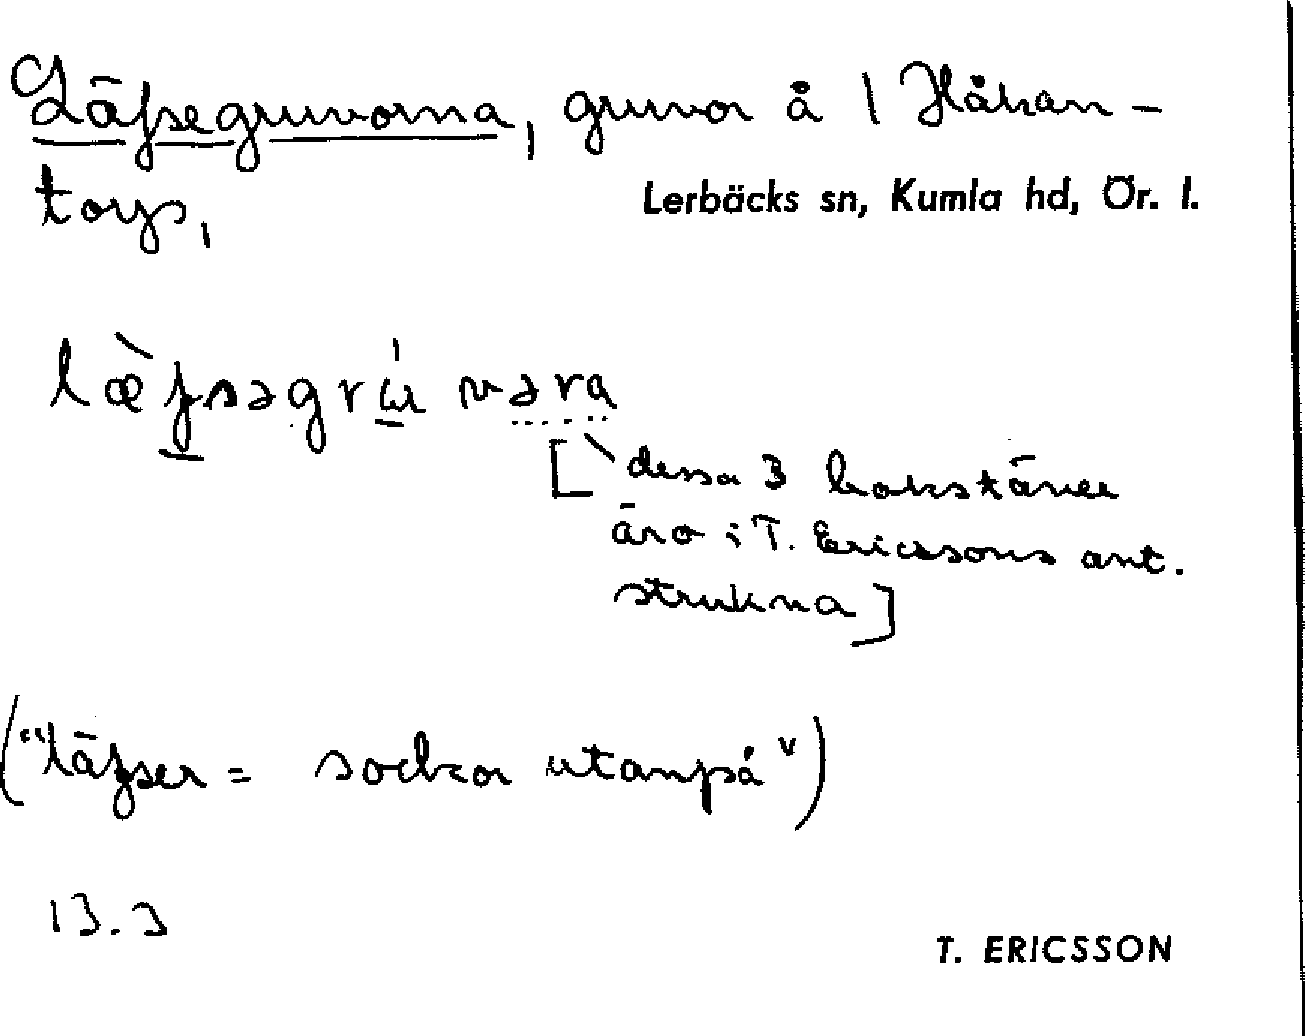 Läfsegruvorna, gruvor å 1 Håkan-
torp,
Lerbäcks sn, Kumla hd, Ör. l.
læ̀fsəgrɯ́ vəra
[dessa 3 bokstäver
äro i T. Ericssons ant.
strukna]
("läfser = sockor utanpå")
13.3
T. ERICSSON